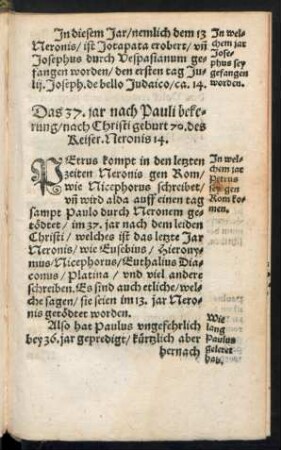 In diesem Jar/nemlich dem 13
Neronis/ist Jotapata erobert/vñ
Josephus durch Vespasianum ge-
fangen worden/den ersten tag Ju-
lij. Joseph. de bello Judaico/ca. 14.
In wel-
chem jar
Jose-
phus sey
gefangen
worden.
Das 37. jar nach Pauli beke-
rung/nach Christi geburt 70. des
Keiser. Neronis 14.
PEtrus kompt in den letzten
zeiten Neronis gen Rom/
wie Nicephorus schreibet/
vñ wird alda auff einen tag
sampt Paulo durch Neronem ge-
tödtet/im 37. jar nach dem leiden
Christi/welches ist das letzte Jar
Neronis/wie Eusebius/Hierony-
mus/Nicephorus/Euthalius Dia-
conus/Platina/vnd viel andere
schreiben. Es sind auch etliche/wel-
che sagen/sie seien im 13. jar Nero-
nis getödtet worden.
In wel-
chem jar
Petrus
sey gen
Rom ko-
men.
Also hat Paulus vngefehrlich
bey 36. jar gepredigt/kürtzlich aber
hernach
Wie
lang
Paulus
geleret
hab.